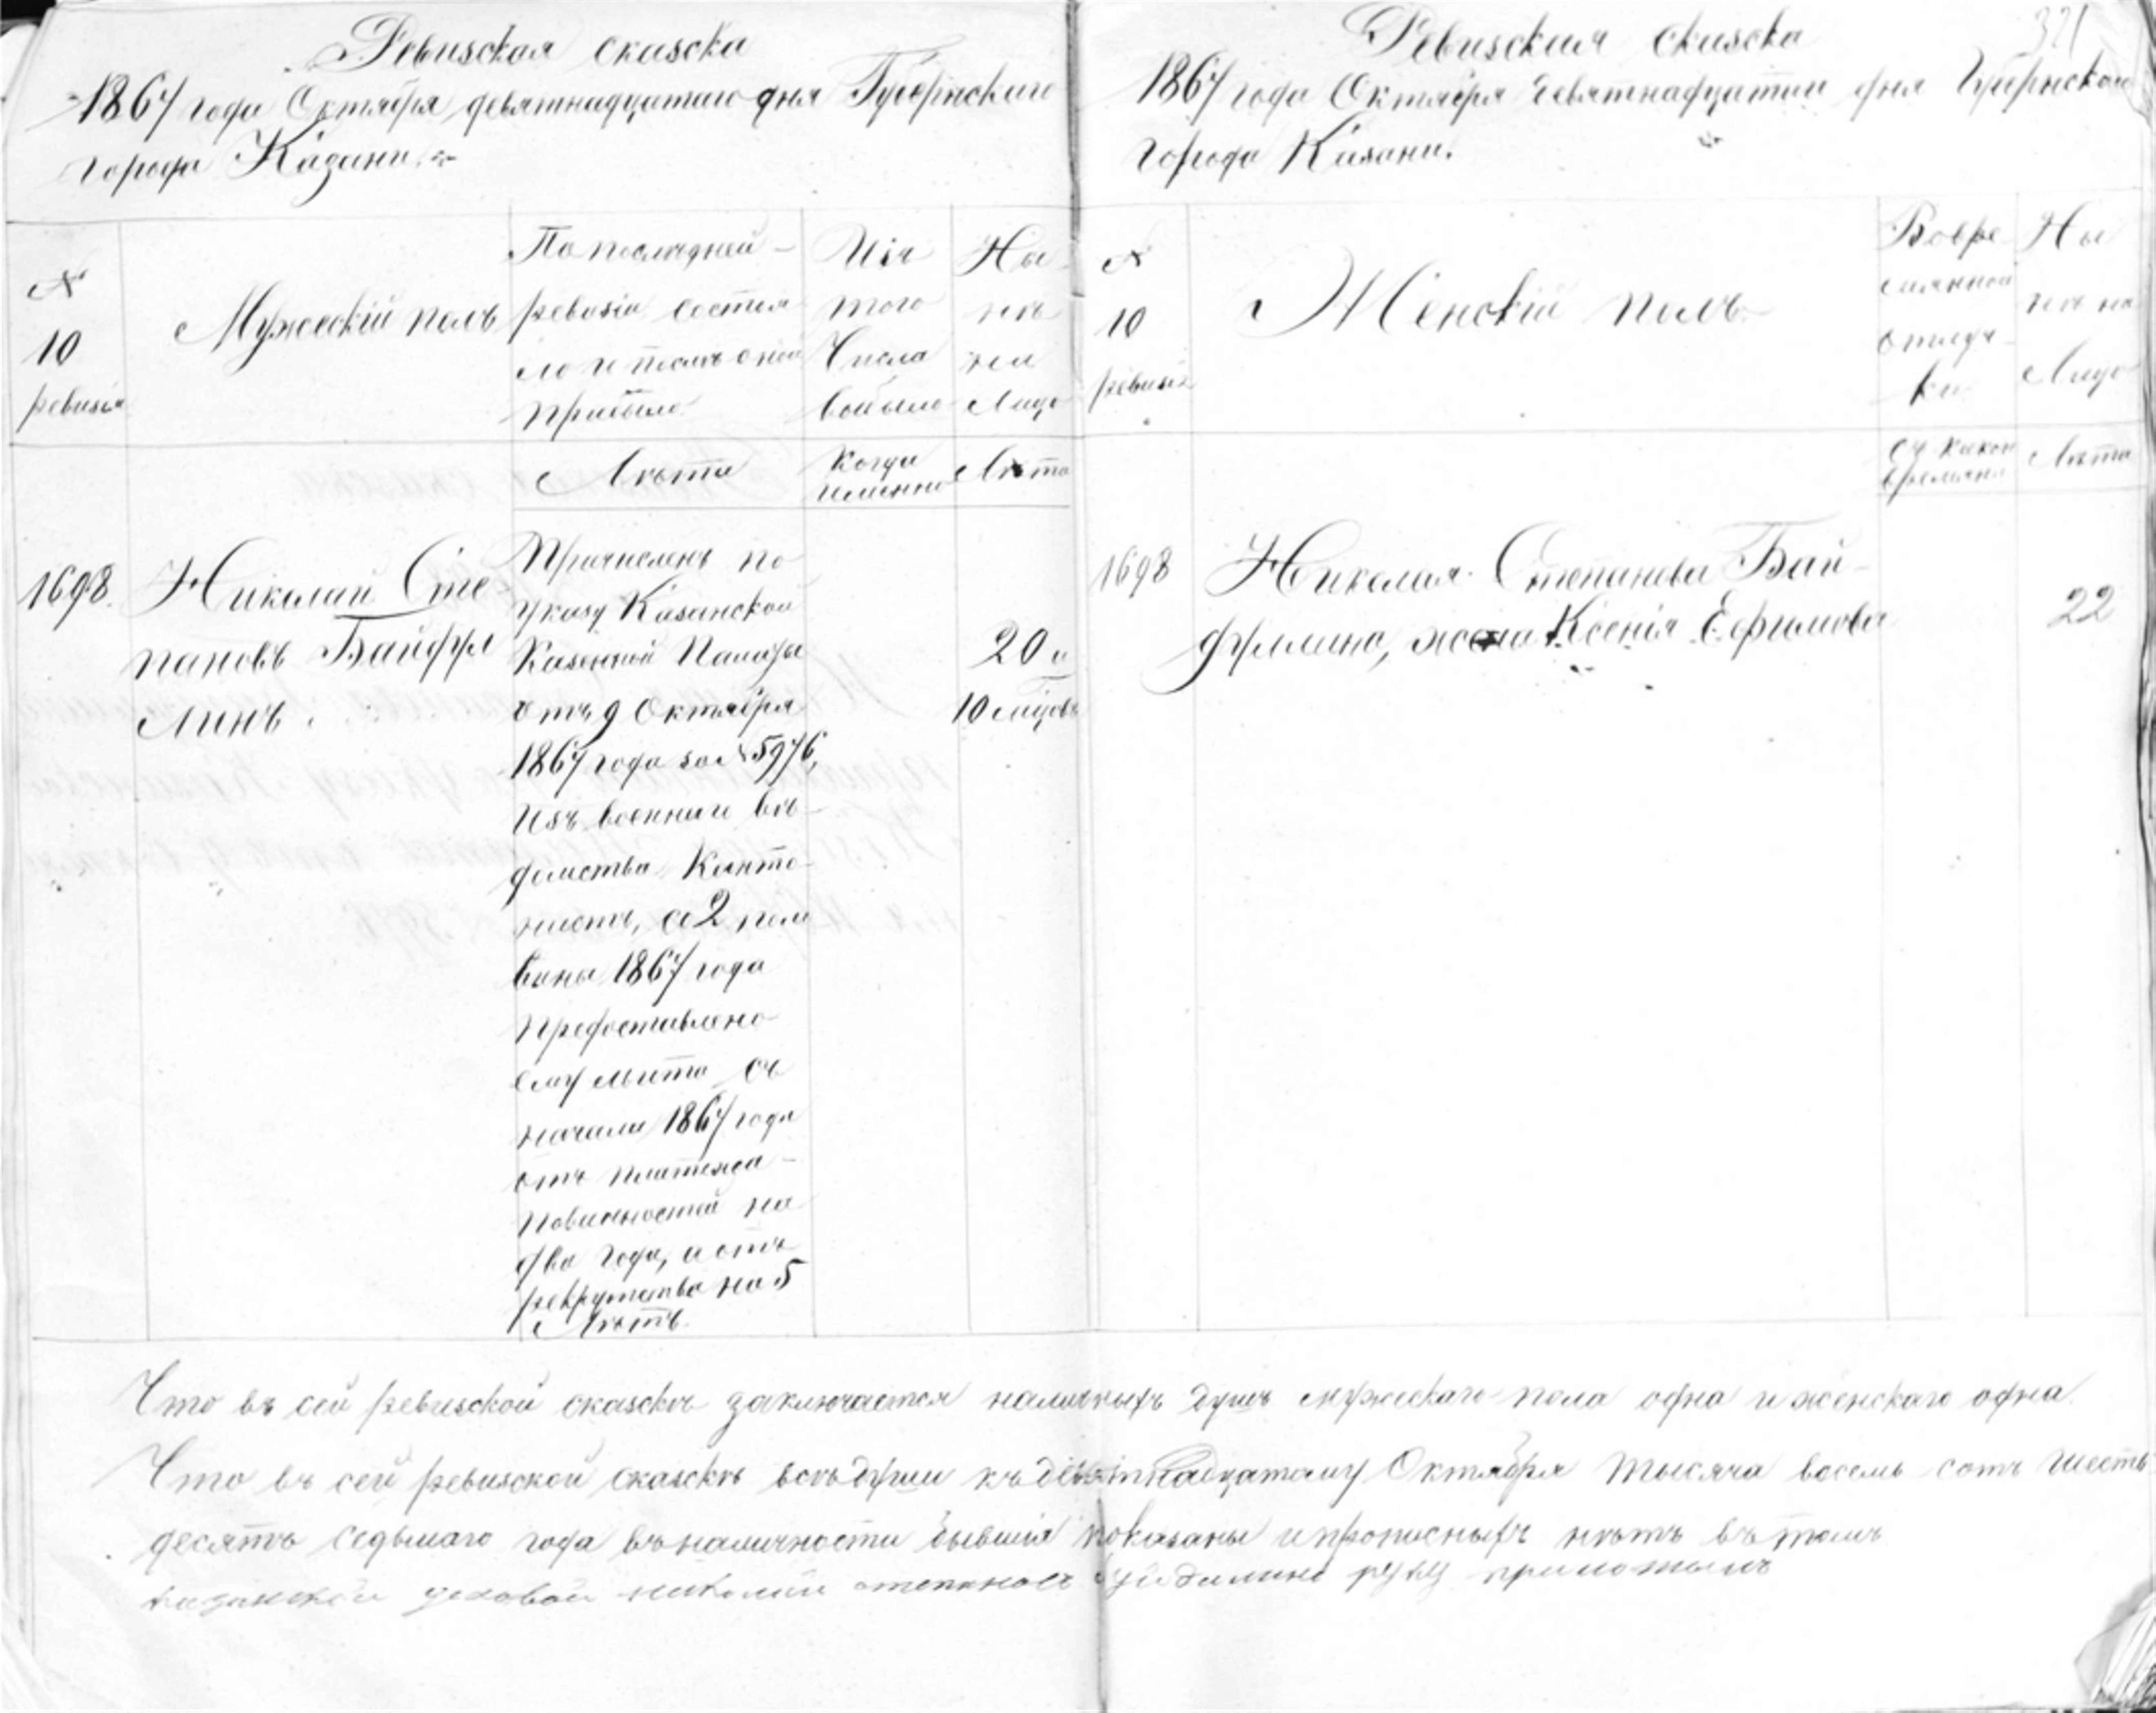 Ревизская сказка
1867 года Октября девятнадцатаго дня Губернскаго
города Казани.
№
10
ревизіи
Мужескій полъ
По последней
ревизіи состоя
ло и послѣ оной
прибыло
Изъ
того
числа
выбыло
Ны
нѣ
на
лицо
Лѣта
Когда
именно
Лѣта
1698.
Николай Сте
пановъ Байдул
линъ.
Причисленъ по
указу Казанской
Казенной Палаты
отъ 9 Октября
1867 года за № 5976,
изъ военнаго вѣ
домства Канто
нистъ, со 2 поло
вины 1867 года
предоставлено
ему льгота съ
начала 1867 года
отъ платежа
повинностей на
два года, и отъ
рекрутства на 5
Лѣтъ.
20 и
10 мѣсяцовъ
321
Ревизская сказка
1867 года Октября девятнадцатаго дня Губернскаго
города Казани.
№
10
ревизіи
Женскій полъ
Во вре
мянной
отлуч
кѣ
Ны
нѣ на
лицо
Съ какого
времяни
Лѣта
1698
Николая Степанова Бай
дуллина, жена Ксенія Ефимова
22
Что въ сей ревизской сказкѣ заключается наличныхъ душъ мужескаго пола одна и женскаго одна.
Что въ сей ревизской сказкѣ всѣ души къ девятнадцатому Октября тысяча восемь сотъ шесть
десятъ седьмаго года въ наличности бывшія показаны и прописныхъ нѣтъ въ томъ
казанской цеховой николай степановъ руку приложилъ